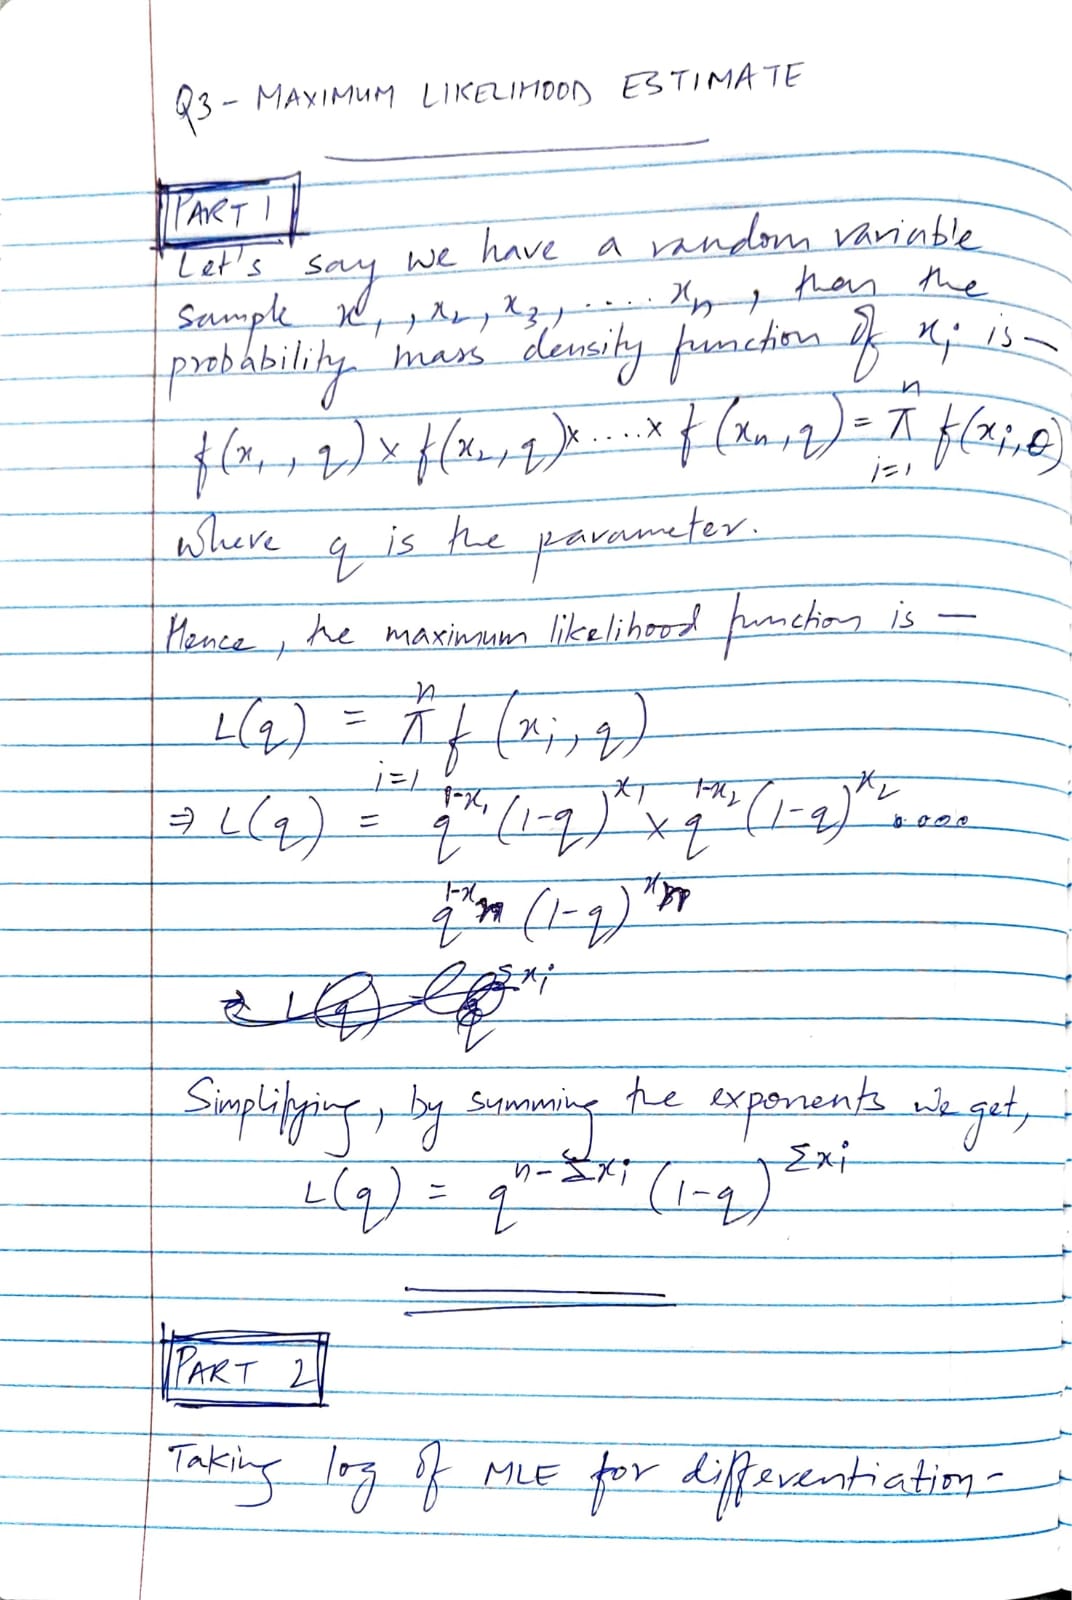 Q3 - MAXIMUM LIKELIHOOD ESTIMATE
PART 1
Let's say we have a random variable
sample x₁, x₂, x₃, ..... xₙ, then the
probability mass density function of xᵢ is -
f(x₁, q) × f(x₂, q) × ..... × f(xₙ, q) = π_{i=1}^{n} f(xᵢ, θ)
where q is the parameter.
Hence, the maximum likelihood function is —
L(q) = π_{i=1}^{n} f(xᵢ, q)
⇒ L(q) = q^{1-x₁} (1-q)^{x₁} × q^{1-x₂} (1-q)^{x₂} ....
q^{1-xₙ} (1-q)^{xₙ}
Simplifying, by summing the exponents we get,
L(q) = q^{n-Σxᵢ} (1-q)^{Σxᵢ}
PART 2
Taking log of MLE for differentiation -